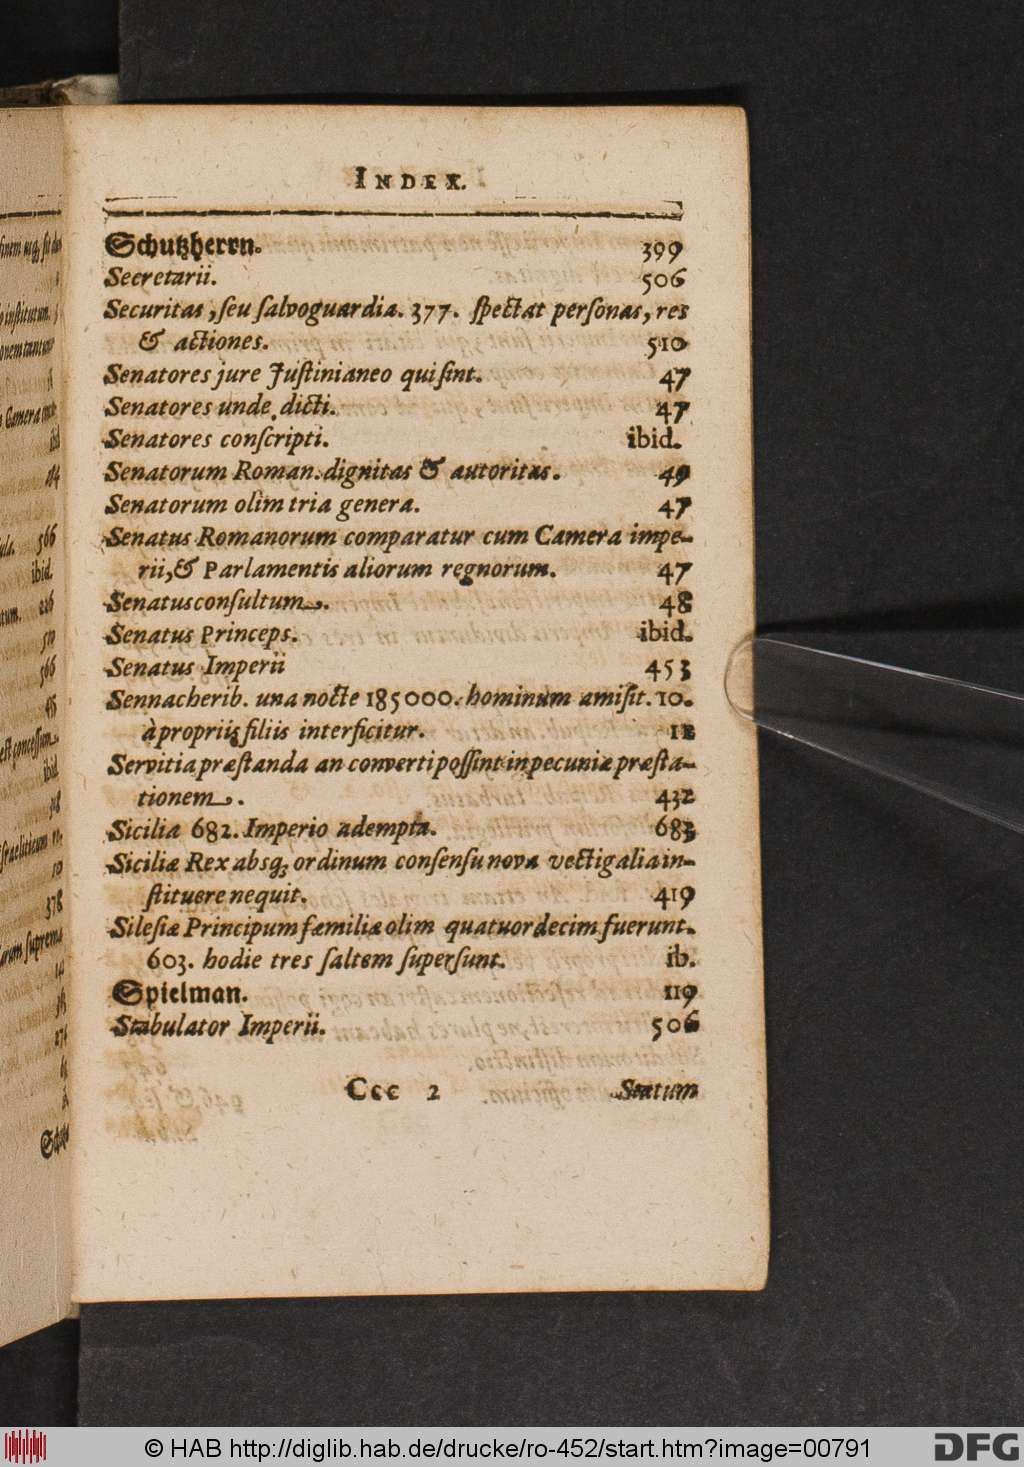 INDEX.
Schutzherrn. 399
Secretarii. 506
Securitas, ſeu ſalvoguardia. 377. ſpectat perſonas, res
& actiones. 510
Senatores jure Juſtinianeo qui ſint. 47
Senatores unde dicti. 47
Senatores conſcripti. ibid.
Senatorum Roman. dignitas & autoritas. 49
Senatorum olim tria genera. 47
Senatus Romanorum comparatur cum Camera impe-
rii, & Parlamentis aliorum regnorum. 47
Senatusconſultum. 48
Senatus Princeps. ibid.
Senatus Imperii 453
Sennacherib. una nocte 185000. hominum amiſit. 10.
à propriis filiis interficitur. 11
Servitia præſtanda an converti poſſint in pecuniæ præſta-
tionem. 432
Sicilia 682. Imperio adempta. 683
Siciliæ Rex absq; ordinum conſenſu nova vectigalia in-
ſtituere nequit. 419
Sileſiæ Principum familiæ olim quatuordecim fuerunt.
603. hodie tres ſaltem ſuperſunt. ib.
Spielman. 119
Stabulator Imperii. 506
Ccc 2 Statum
ibid.
566
ibid.
226
510
566
ibid.
378
© HAB http://diglib.hab.de/drucke/ro-452/start.htm?image=00791
DFG